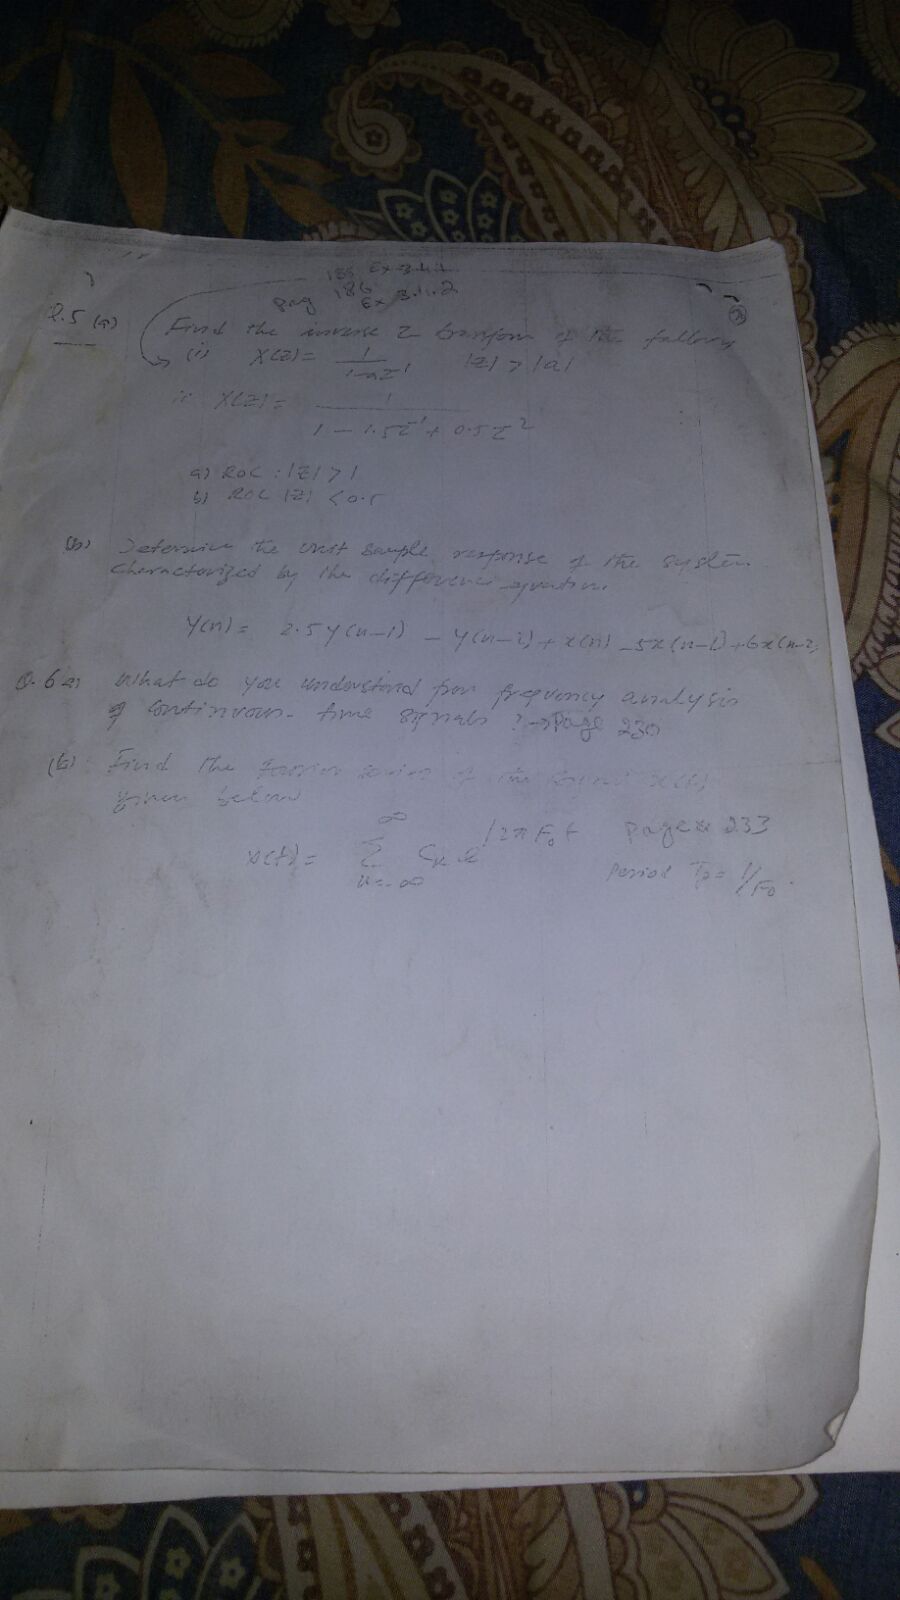 185 Ex 3.4.1
Pag 186 Ex 3.4.2
Q.5 (a) Find the inverse Z transform of the following
(i) X(z) = 1/(1-az⁻¹) |z| > |a|
ii X(z) = 1/(1 - 1.5z⁻¹ + 0.5z⁻²)
a) ROC : |z| > 1
b) ROC |z| < 0.5
(b) Determine the unit sample response of the system
characterized by the difference equation.
y(n) = 2.5y(n-1) - y(n-2) + x(n) - 5x(n-1) + 6x(n-2)
Q.6 a) What do you understand from frequency analysis
of continuous-time signals ? → Page 230
(b) Find the Fourier series of the signal x(t)
given below
x(t) = ∞ Σ k=-∞ Cₖ e^j2πF₀t Page 233
Period Tp = 1/F₀.